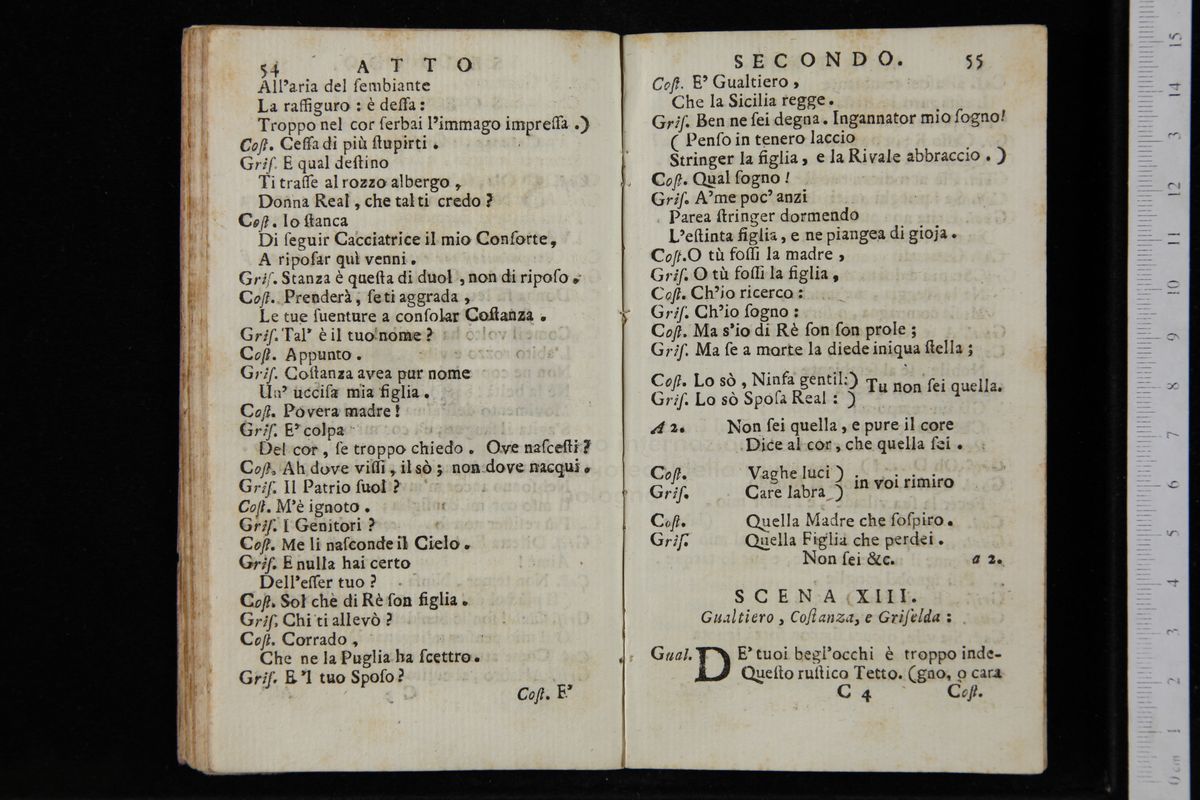 54 ATTO
All'aria del ſembiante
La raffiguro : è deſſa :
Troppo nel cor ſerbai l'immago impreſſa .)
Coſt. Ceſſa di più ſtupirti .
Griſ. E qual deſtino
Ti traſſe al rozzo albergo ,
Donna Real , che tal ti credo ?
Coſt. Io ſtanca
Di ſeguir Cacciatrice il mio Conſorte,
A ripoſar quì venni .
Griſ. Stanza è queſta di duol , non di ripoſo .
Coſt. Prenderà , ſe ti aggrada ,
Le tue ſuenture a conſolar Coſtanza .
Griſ. Tal' è il tuo nome ?
Coſt. Appunto .
Griſ. Coſtanza avea pur nome
Un' ucciſa mia figlia .
Coſt. Povera madre !
Griſ. E' colpa
Del cor , ſe troppo chiedo . Ove naſceſti ?
Coſt. Ah dove viſſi , il sò ; non dove nacqui .
Griſ. Il Patrio ſuol ?
Coſt. M'è ignoto .
Griſ. I Genitori ?
Coſt. Me li naſconde il Cielo .
Griſ. E nulla hai certo
Dell'eſſer tuo ?
Coſt. Sol chè di Rè ſon figlia .
Griſ. Chi ti allevò ?
Coſt. Corrado ,
Che ne la Puglia ha ſcettro .
Griſ. E 'l tuo Spoſo ?
Coſt. E'
SECONDO. 55
Coſt. E' Gualtiero ,
Che la Sicilia regge .
Griſ. Ben ne ſei degna . Ingannator mio ſogno!
( Penſo in tenero laccio
Stringer la figlia , e la Rivale abbraccio . )
Coſt. Qual ſogno !
Griſ. A'me poc' anzi
Parea ſtringer dormendo
L'eſtinta figlia , e ne piangea di gioja .
Coſt. O tù foſſi la madre ,
Griſ. O tù foſſi la figlia ,
Coſt. Ch'io ricerco :
Griſ. Ch'io ſogno :
Coſt. Ma s'io di Rè ſon ſon prole ;
Griſ. Ma ſe a morte la diede iniqua ſtella ;
Coſt. Lo sò , Ninfa gentil:) Tu non ſei quella.
Griſ. Lo sò Spoſa Real : )
A 2. Non ſei quella , e pure il core
Dice al cor , che quella ſei .
Coſt. Vaghe luci ) in voi rimiro
Griſ. Care labra )
Coſt. Quella Madre che ſoſpiro .
Griſ. Quella Figlia che perdei .
Non ſei &c. a 2.
SCENA XIII.
Gualtiero , Coſtanza, e Griſelda :
Gual. DE' tuoi begl'occhi è troppo inde-
Queſto ruſtico Tetto. (gno, o cara
C 4 Coſt.